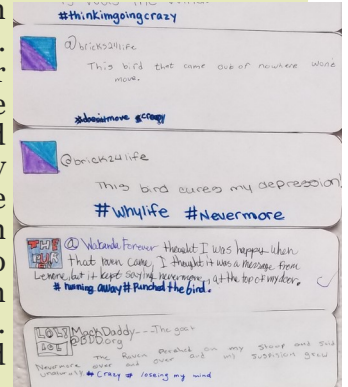 #thinkimgoingcrazy
@bricks24life
This bird that came out of nowhere wont
move.
#doesntmove #creepy
@bricks24life
This bird cures my depression!
#whylife #Nevermore
@ Wakanda Forever thought I was happy when
that raven came, I thought it was a message from
Lenore, but it kept saying nevermore, at the top of my door.
# running away # Punched the bird.
LOL!
LOL
MackDaddy--The goat
The Raven perched on my and said
Nevermore over and over and my suspicion grew
# Crazy # loseing my mind